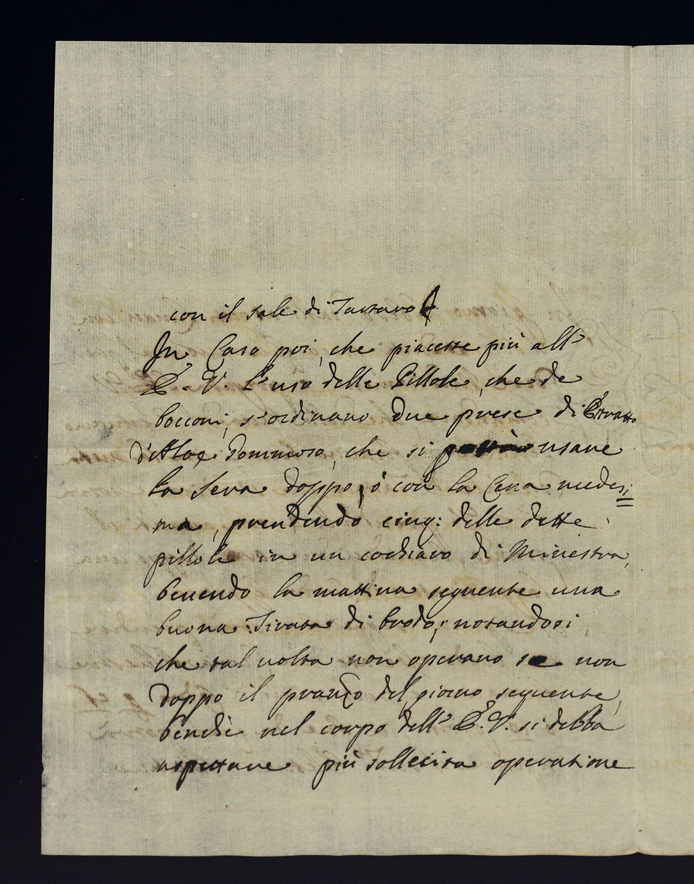 con il sale di Tartaro
In Caso poi, che piacesse più all'
E. V. l'uso delle Pillole, che de
bocconi, s'ordinano due prese di Estratto
d'Aloe Gommoso, che si usane
la Sera doppo, ó con la Cena medesi
ma, prendendo cinq: delle dette
pillole in un cochiaro di Minestra,
bevendo la mattina seguente una
buona Tirata di brodo; notandosi
che tal volta non operano se non
doppo il pranzo del giorno seguente,
benchè nel corpo dell' E. V. si debba
aspettare più sollecita operatione